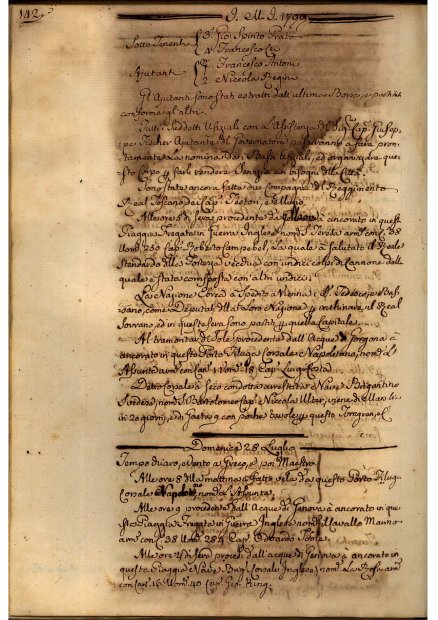 142.
J. M. J. 1799
Sotto Tenenti { 3. Gio: Spirito Prato
4. Francesco
Ajutanti { Francesco Antoni
2. Niccola Regini
Gl'Ajutanti sono stati estratti dall'ultima Borsa, e partiti
conforme gl'altri.
Tutti i suddetti Ufiziali con l'Assistenza del Cap: Giusep-
pe Fischer Ajutante del Governatore passeranno a fare pron-
tamente la nomina dei Bassi Ufiziali, ed organizzare que-
sto Corpo, e farli rendere Servizio ai bisogni della Città.
Sono state ancora fatte due Compagnie del Reggimento
Real Toscano
Alle ore 5 di sera procedente da è ancorato in questa
Piaggia Fregata in Guerra Inglese nom: S. Teresa arm: con C. 38
Uom: 250 Cap: Roberto Campebel, la quale à salutato il Reale
Stendardo della Fortezza Vecchia con undici colpi di Cannone della
quale è stata corrisposta con altri undici.
La Nazione Ebrea à spedito a Vienna i SS:
sano, come Deputati della loro Nazione
Sovrano, ed in questa sera sono partiti per quella Capitale.
Al tramontar del Sole procedente dall'Acque di Gorgona à
ancorato in questo Porto Feluca Corsale Napoletano, nom: L'
Assunta arm: con 1 Uom: 18 Cap: Luigi Costa
Detto Corsale à seco condotta arrestata Nave Brigantino
Svedese, nom: S. Bartolomeo Cap: Niccola Ulter, viene di Marsilia
in 20 giorni, e di Gaeta 9 con poche tavole per questo
Domenica 28 Luglio
Tempo chiaro, e Vento a Greco, e poi Maestro.
Alle ore 8 della mattina à fatto vela da questo Porto Feluca
Corsale Napolet:no nom: L'Assunta.
Alle ore 9 procedente dall'Acque di Genova à ancorato in que-
sta Piaggia Fregata in Guerra Inglese nom: Il Cavallo Marino
arm: con C. 38 Uom: 284 Cap: Edoardo Foote.
Alle ore di sera proced: dall'acque di Genova à ancorato in
questa Piaggia Nave Brig: Corsale Inglese, nom: La Rosa arm:
con Can: 16 Uom: 40 Cap: Gio: King.